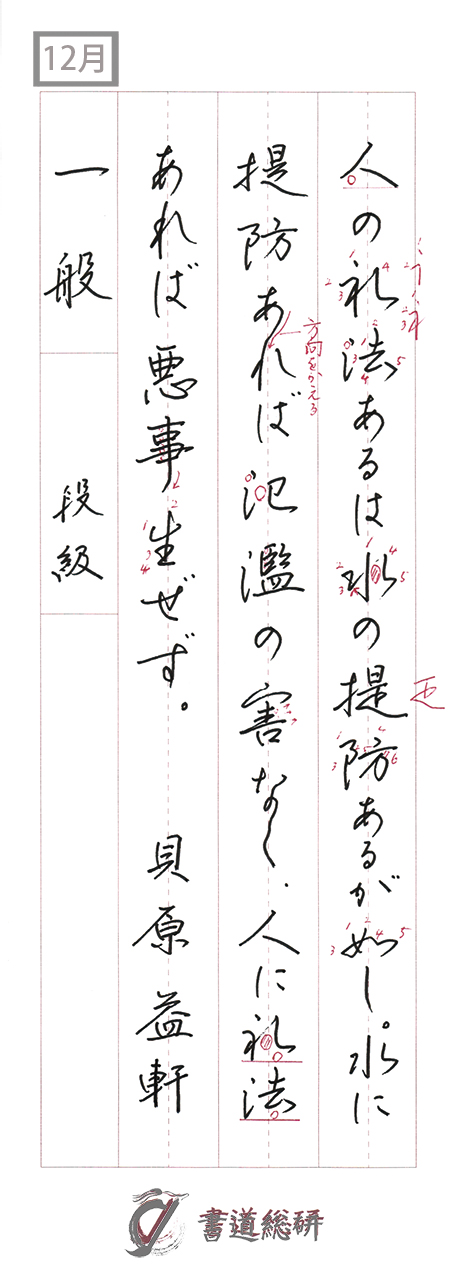 12月
人の礼法あるは水の堤防あるが如し。水に
堤防あれば氾濫の害なく、人に礼法
あれば悪事生ぜず。 貝原益軒
一般 段級
方向をかえる
書道総研